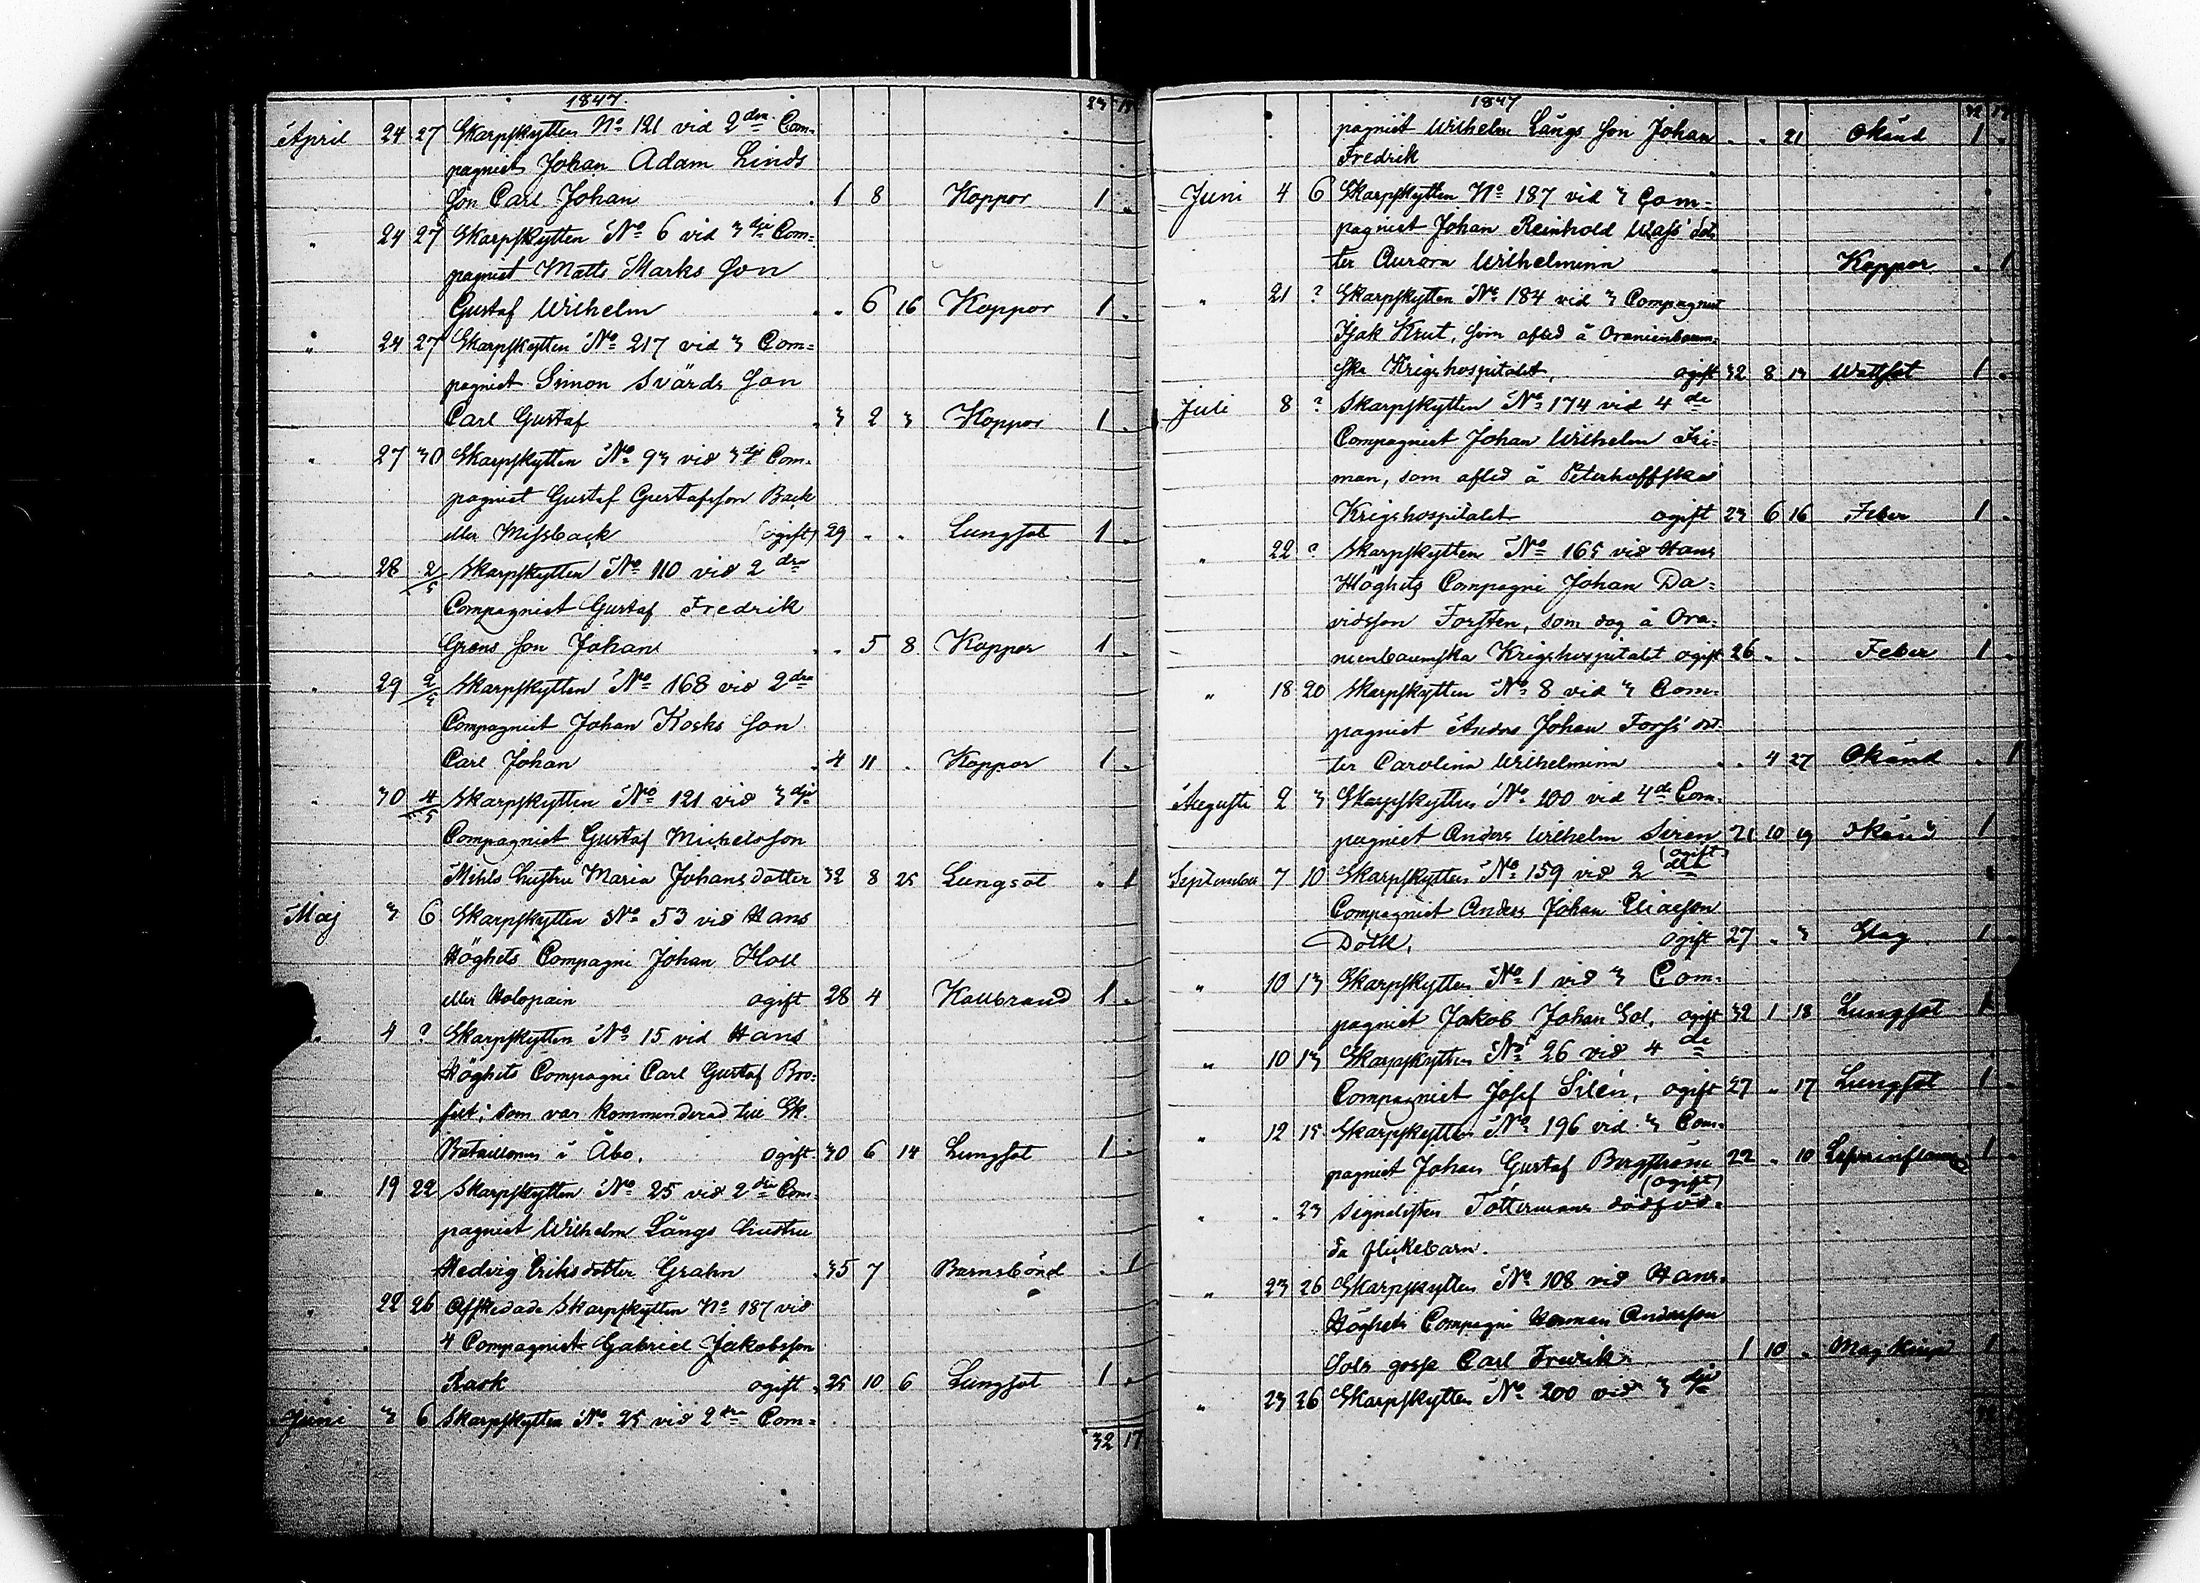 1847. 23 15
April 24 27 Skarpskytten No 121 vid 2dra Com-
pagniet Johan Adam Linds
son Carl Johan 1 8 Koppor 1 "
" 24 27 Skarpskytten No 6 vid 3dje Com-
pagniet Matts Marks son
Gustaf Wilhelm " 6 16 Koppor 1 "
" 24 27 Skarpskytten No 217 vid 3 Com=
pagniet Simon Svärds son
Carl Gustaf 3 2 3 Koppor 1 "
" 27 30 Skarpskytten No 93 vid 3dje Com-
pagniet Gustaf Gustafsson Back
eller Missback (ogift) 29 " " Lungsot 1 "
" 28 2/5 Skarpskytten No 110 vid 2dra
Compagniet Gustaf Fredrik
Gröns son Johan " 5 8 Koppor 1 "
" 29 2/5 Skarpskytten No 168 vid 2dra
Compagniet Johan Kosks son
Carl Johan 4 11 " Koppor 1 "
" 30 4/5 Skarpskytten No 121 vid 3dje
Compagniet Gustaf Michelsson
Mihls hustru Maria Johansdotter 32 8 25 Lungsot " 1
Maj 3 6 Skarpskytten No 53 vid Hans
Höghets Compagni Johan Holl
eller Holopain ogift 28 4 Kallbrand 1 "
" 4 ? Skarpskytten No 15 vid Hans
Höghets Compagni Carl Gustaf Bro-
som var kommenderad till Sk.
Bataillonen i Åbo, ogift 30 6 14 Lungsot 1 "
" 19 22 Skarpskytten No 25 vid 2dra Com-
pagniet Wilhelm Långs hustru
Hedvig Eriksdotter Grahn 35 7 Barnsbörd " 1
" 22 26 Afskedade Skarpskytten No 187 vid
4 Compagniet Gabriel Jakobsson
Rask ogift 25 10 6 Lungsot 1 "
Juni 3 6 Skarpskytten No 25 vid 2dra Com=
32 17
1847 32 17
pagniet Wilhelm Långs son Johan " " 21 Okänd 1 "
Fredrik
Juni 4 6 Skarpskytten No 187 vid 3 Com=
pagniet Johan Reinhold Wass' dot-
ter Aurora Wilhelmina Koppor " 1
" 21 ? Skarpskytten No 184 vid 3 Compagniet
Isak Krut, som afled å Oranienbaum-
ska Krigshospitalet, ogift 32 8 13 Wattsot 1 "
Juli 8 ? Skarpskytten No 174 vid 4de
Compagniet Johan Wilhelm Fri=
man, som afled å Peterhoffska
Krigshospitalet ogift 23 6 16 Feber 1 "
" 22 ? Skarpskytten No 165 vid Hans
Höghets Compagni Johan Da-
vidsson Forsten, som dog å Ora-
nienbaumska Krigshospitalet ogift 26 " " Feber 1 "
" 18 20 Skarpskytten No 8 vid 3 Com-
pagniet Anders Johan Forss' dot-
ter Carolina Wilhelmina " 4 27 Okänd " 1
Augusti 2 3 Skarpskytten No 100 vid 4de Com-
pagniet Anders Wilhelm Siren 21 10 19 Okänd 1 "
(ogift)
September 7 10 Skarpskytten No 159 vid 2dra
Compagniet Anders Johan Eliasson
Doll, ogift 27 " 3 Slag 1 "
" 10 13 Skarpskytten No 1 vid 3 Com-
pagniet Jakob Johan Sol, ogift 32 1 18 Lungsot 1
" 10 13 Skarpskytten No 26 vid 4de
Compagniet Josef Silén, ogift 27 " 17 Lungsot 1 "
" 12 15 Skarpskytten No 196 vid 3 Com-
pagniet Johan Gustaf Bergström 22 " 10 1 "
(ogift)
" " 23 Signalisten Tottermans dödföd-
da flickebarn.
" 23 26 Skarpskytten No 108 vid Hans
Höghets Compagni Herman Andersson
Sols gosse Carl Fredrik 1 10 " 1 "
" 23 26 Skarpskytten No 200 vid 3dje